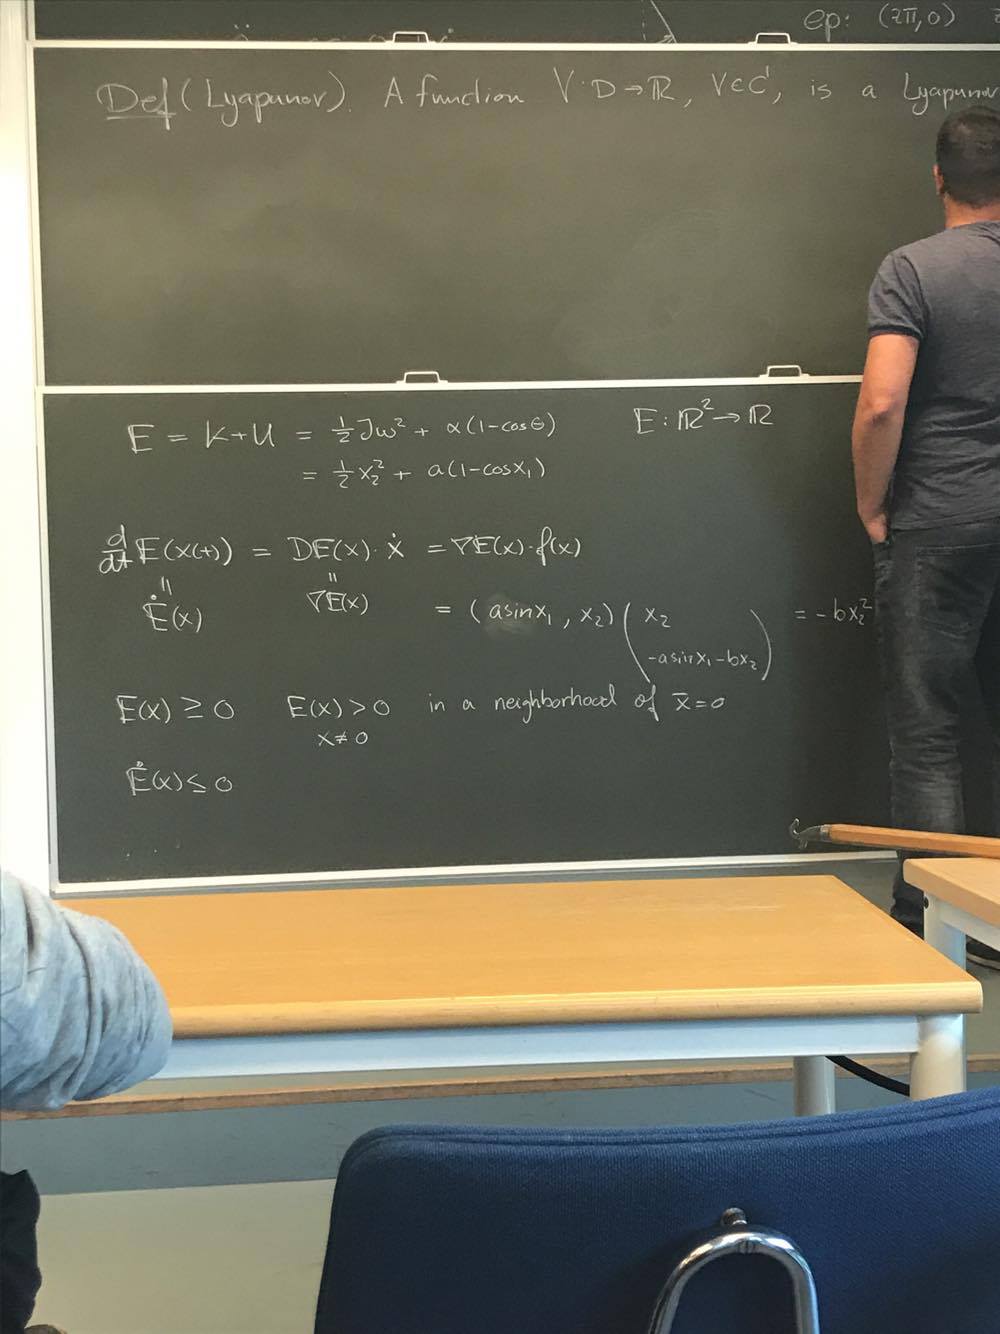 ep: (2π,0)
Def (Lyapunov). A function V: D→ℝ, V∈C¹, is a Lyapunov
E = K+U = ½Jω² + α(1-cosθ) E: ℝ²→ℝ
= ½x₂² + a(1-cosx₁)
d/dt E(x(t)) = DE(x)·ẋ = ∇E(x)·f(x)
Ė(x) ∇E(x) = (asinx₁, x₂) (x₂ = -bx₂²
-asinx₁-bx₂)
E(x) ≥ 0 E(x) > 0 in a neighborhood of x̄=0
x≠0
Ė(x) ≤ 0